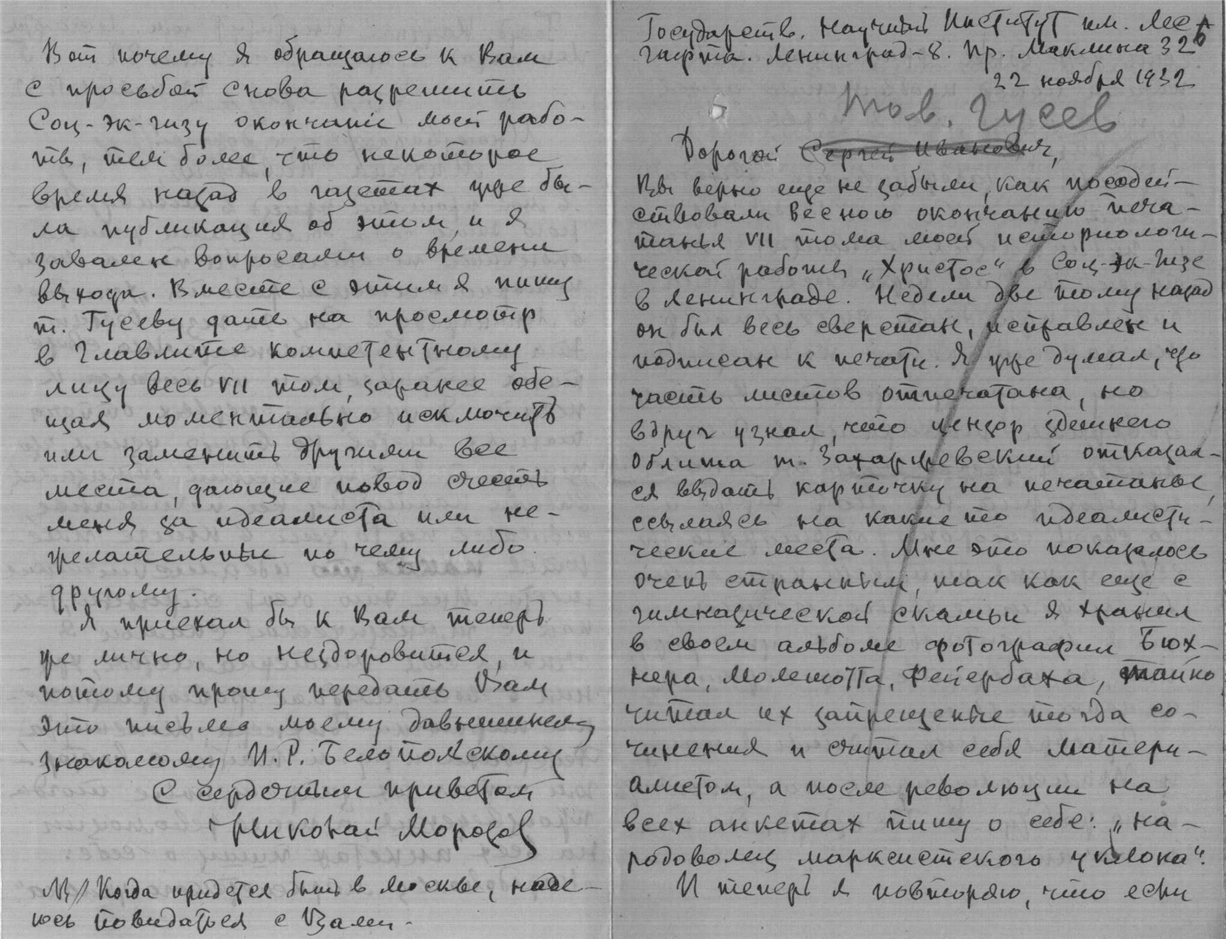 Государств. Научный Институт им. Лес-
гафта. Ленинград-8. Пр. Маклина 32
22 ноября 1932
Тов. Гусев
Дорогой Сергей Иванович,
Вы верно еще не забыли, как посодей-
ствовали весною окончанию печа-
танья VII тома моей историологи-
ческой работы „Христос" в Соц-эк-гизе
в Ленинграде. Недели две тому назад
он был весь сверстан, исправлен и
подписан к печати. Я уже думал, что
часть листов отпечатана, но
вдруг узнал, что цензор здешнего
Облита т. Захаржевский отказал-
ся выдать карточку на печатанье,
ссылаясь на какие то идеалисти-
ческие места. Мне это показалось
очень странным, так как еще с
гимназической скамьи я хранил
в своем альбоме фотографии Бюх-
нера, Молешотта, Фейербаха, тайно
читал их запрещенные тогда со-
чинения и считал себя матери-
алистом, а после революции на
всех анкетах пишу о себе: „на-
родоволец марксистского уклона".
И теперь я повторяю, что если
Вот почему я обращаюсь к Вам
с просьбой снова разрешить
Соц-эк-гизу окончание моей рабо-
ты, тем более, что некоторое
время назад в газетах уже бы-
ла публикация об этом, и я
завален вопросами о времени
выхода. Вместе с этим я пишу
т. Гусеву дать на просмотр
в Главлите компетентному
лицу весь VII том, заранее обе-
щая моментально исключить
или заменить другими все
места, дающие повод счесть
меня за идеалиста или не-
желательные по чему либо
другому.
Я приехал бы к Вам теперь
же лично, но нездоровится, и
потому прошу передать Вам
это письмо моему давнишнему
знакомому И. Р. Белопольскому
С сердечным приветом
Николай Морозов
NB/ Когда придется быть в Москве, наде-
юсь повидаться с Вами.